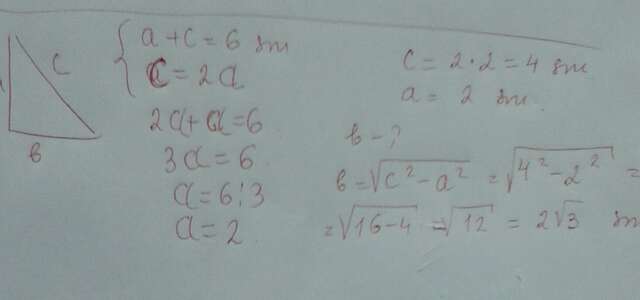 c
в
a + c = 6 sm
c = 2a
2a + a = 6
3a = 6
a = 6:3
a = 2
c = 2 · 2 = 4 sm
a = 2 sm.
в - ?
в = √c² - a² = √4² - 2² =
= √16 - 4 = √12 = 2√3 sm